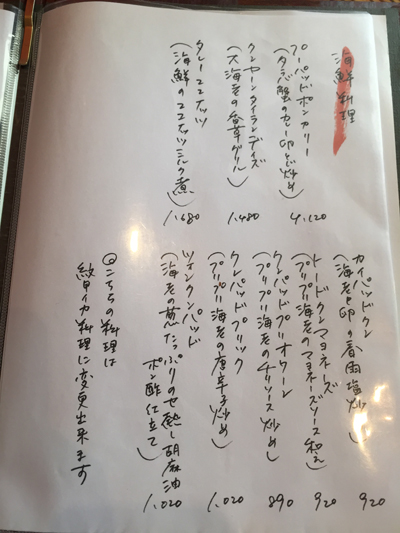 海鮮料理
プーパッドポンカリー
(タラバ蟹のカレー卵とじ炒め)
4,120
クンヤンタイランディズ
(大海老の香草グリル)
1,480
タレーココナッツ
(海鮮のココナッツミルク煮)
1,680
カイパッドクン
(海老と卵の香園塩炒)
920
トードクンマヨネーズ
(プリプリ海老のマヨネーズソース和え)
920
クンパッドプリオワーン
(プリプリ海老のチリソース炒め)
890
クンパッドプリック
(プリプリ海老の唐辛子炒め)
1,020
ツインクンパッド
(海老の葱たっぷりのせ蒸し胡麻油
ポン酢仕立て)
1,020
◎こちらの料理は
紋甲イカ料理に変更出来ます